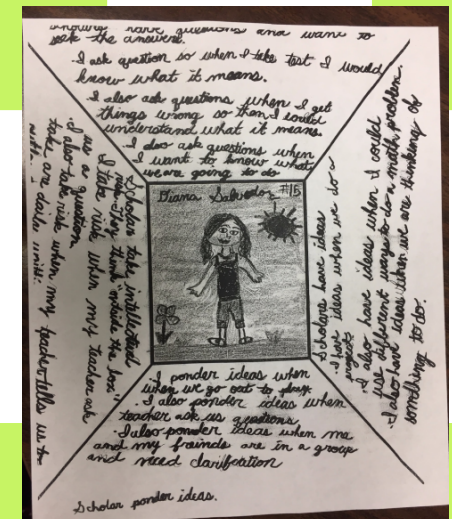 have questions and want to
seek the answers.
. I ask question so when I take test I would
know what it means.
. I also ask questions when I get
things wrong so then I could
understand what it means
. I also ask questions when
I want to know what
we are going to do
Diana Salvador #15
Scholars have ideas
. I have ideas when we do a
project
. I also have ideas when I could
use different ways to do a math problem.
. I also have ideas when we are thinking of
something to do.
. I ponder ideas when
when we go out to play.
. I also ponder ideas when
teacher ask us questions
. I also ponder ideas when me
and my freinds are in a group
and need clarification
Scholar ponder ideas.
Scholars take intellectual
risk. They think "inside the box"
. I take risk when my teacher ask
us a question
. I also take risk when my teacher tells us to
take are daily